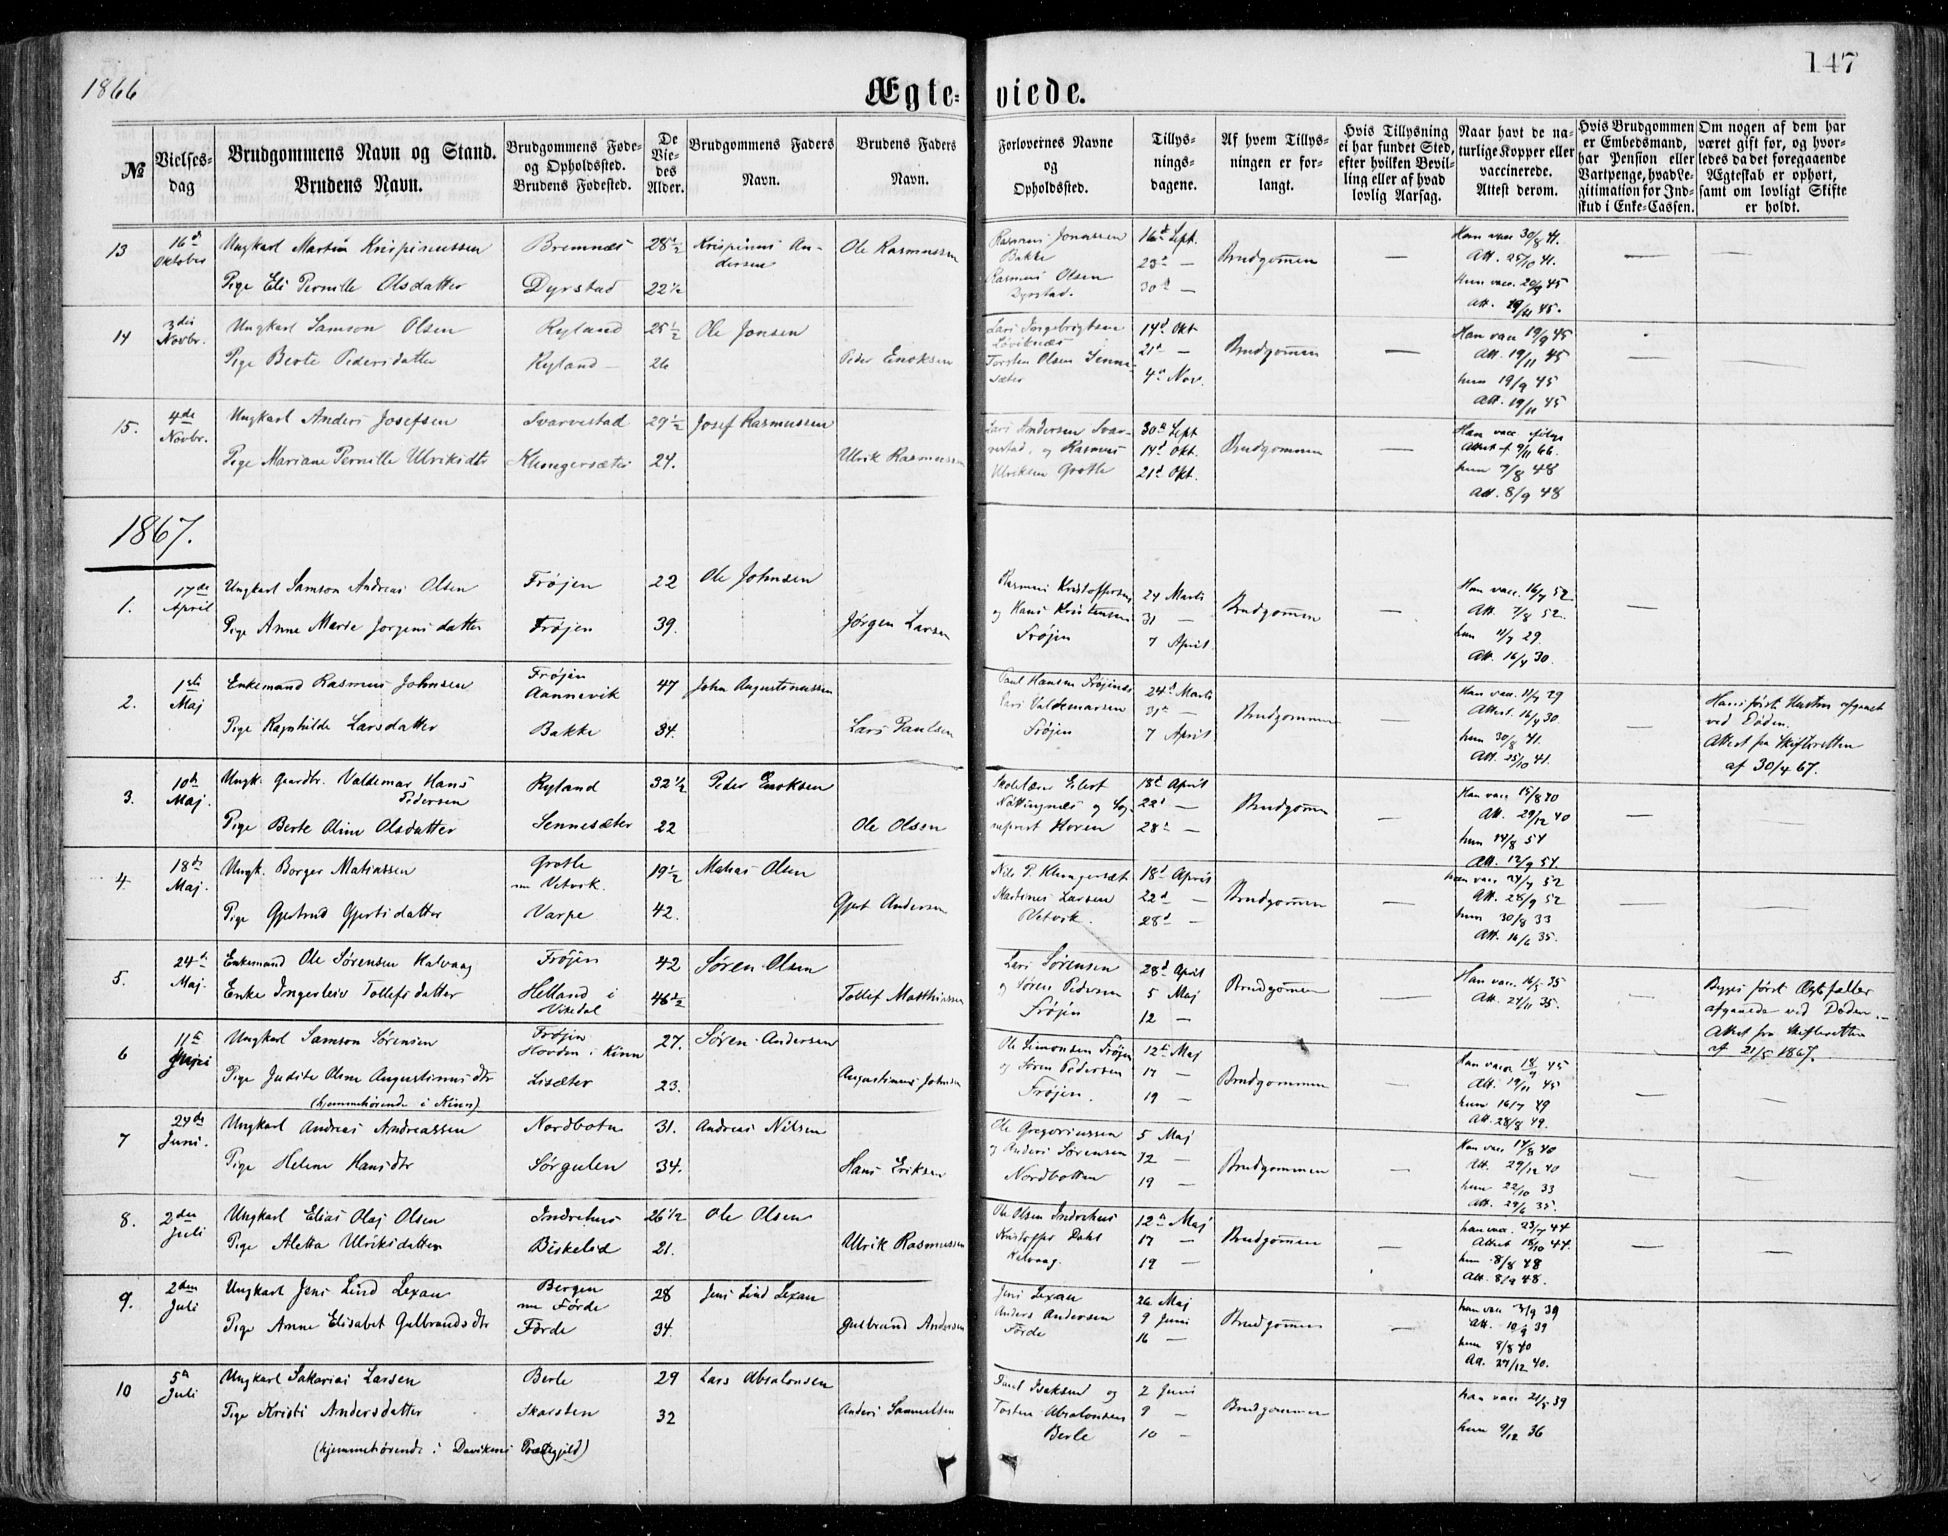 1866
Ægteviede.
147
№
Vielsesdag
Brudgommens Navn og Stand.
Brudens Navn.
Brudgommens Føde-
og Opholdssted.
Brudens Fødested.
De
Vie-
des
Alder.
Brudgommens Faders
Navn.
Brudens Faders
Navn.
Forlovernes Navne
og
Opholdssted.
Tillys-
nings-
dagene.
Af hvem Tillys-
ningen er for-
langt.
Hvis Tillysning
ei har fundet Sted,
efter hvilken Bevil-
ling eller af hvad
lovlig Aarsag.
Naar havt de na-
turlige Kopper eller
vaccinerede.
Attest derom.
Hvis Brudgommen
er Embedsmand,
har Pension eller
Vartpenge, hvad Le-
gitimation for Ind-
skud i Enke-Cassen.
Om nogen af dem har
været gift for, og hvor-
ledes da det foregaaende
Ægteskab er ophørt,
samt om lovligt Skifte
er holdt.
13 16d Oktober Ungkarl Martin Krispinussen Bremnæs 28½ Krispinus An-
dersen Ole Rasmussen
Pige Eli Pernille Olsdatter Dyrstad 22½
Rasmus Jonassen 16d Sept. Brudgommen — Han vacc 30/8 41. — —
Bakke 23d — Att. 25/10 41.
Rasmus Olsen 30d — Hun vacc. 20/9 45
Dyrstad. Att. 19/11 45.
14 3die Novbr. Ungkarl Samson Olsen Ryland 25½ Ole Jonsen
Pige Berte Pedersdatter Ryland — 26 Peder Enoksen
Lars Ingebrigtsen 14d Okt Brudgommen — Han vacc 19/9 45 — —
Løviknæs 21d — Att. 19/11 45
Torsten Olsen Senne- 4d Nov. hun 19/9 45
sæter Att. 19/11 45
15. 4de Novbr. Ungkarl Anders Josefsen Svarvestad 29½ Josef Rasmussen
Pige Mariane Pernille Ulriksdtr Klungersæter 24. Ulrik Rasmussen
Lars Andersen Svar- 30d Sept Brudgommen — Han vacc. ifølge
vestad, og Rasmus 14d Okt. Attest af 9/11 66.
Ulriksen Grotle 21d Okt. hun 7/8 48
Att. 8/9 48
1867.
1. 17de April Ungkarl Samson Andreas Olsen Frøjen 22 Ole Johnsen
Pige Anne Marte Jørgensdatter Frøjen 39. Jørgen Larsen
Rasmus Kristoffersen 24 Marts Brudgommen — Han vacc. 16/7 52 —
og Hans Kristensen 31 — Att. 7/8 52.
Frøjen 7 April hun 11/7 29
Att. 16/4 30.
2. 1ste Maj Enkemand Rasmus Johnsen Frøjen
Aannevik 47 John Augustinussen
Pige Ragnhilde Larsdatter Bakke 34. Lars Paulsen
Paul Hansen Frøjen 24d Marts Brudgommen Han vacc. 11/7 29 — Hans først Hustru afgaaet
Lars Valdemarsen 31te — Attest. 16/4 30 ved Døden.
Frøjen 7 April hun 30/8 41. Attest fra Skifteretten
Att. 25/10 41. af 30/4 67.
3. 10de Maj. Ungk. Gaardbr. Valdemar Hans
Pedersen Ryland 32½ Peder Enoksen
Pige Berte Oline Olsdatter Sennesæter 22 Ole Olsen
Skolelærer Eilert 18d April Brudgommen — Han vacc 15/8 40 — —
Nøttingnæs og Sog- 22d — Att. 29/12 40
neprest Horen 28de — hun 14/8 54
Att. 12/9 54.
4. 18de Maj. Ungk. Børger Matiassen Grotle
nu Vetvik. 19½ Matias Olsen
Pige Gjertrud Gjertsdatter Varpe 42. Gjert Andersen
Nils P. Klungersæt 18d April Brudgommen — Han vacc 24/7 52 — —
Martinus Larsen 22d — Att. 28/9 52
Vetvik. 28d — hun 30/8 33
Att. 16/6 35.
5. 24de Maj. Enkemand Ole Sørensen Kalvaag Frøjen 42 Søren Olsen
Enke Ingerleiv Tollefsdatter Helland i
Vikedal 46½ Tollef Matthiassen
Lars Sørensen 28d April Brudgommen — Han vacc. 16/5 35 — Begges først Ægtefæller
og Søren Pedersen 5 Maj Att. 24/11 35. afgaaede ved Døden.
Frøjen 12 — Attest fra Skifteretten
af 21/5 1867.
6 11te Ungkarl Samson Sørensen Frøjen
Hovden i Kinn 27. Søren Andersen
Pige Judite Oline Augustinusdtr Lisæter 23. Augustinus Johnsen
(hjemmehørende i Kinn)
Ole Simonsen Frøjen 12te Maj Brudgommen — Han vacc 18/9 45 — —
og Søren Pedersen 17 — Att. 19/11 45
Frøjen. 19 — hun 16/7 49
Att. 28/8 49.
7 24de Juni. Ungkarl Andreas Andreassen Nordbotn 31. Andreas Nilsen
Pige Helene Hansdtr Sørgulen 34. Hans Eriksen
Ole Gregoriussen 5 Maj Brudgommen — Han vacc 14/8 40 — —
og Anders Sørensen 12 — Att. 29/12 40
Nordbotten 19 — hun 22/10 33
Att. 29/6 35.
8. 2den Juli Ungkarl Elias Olaj Olsen Indrehus 26½ Ole Olsen
Pige Aletta Ulriksdatter Biskelid 21. Ulrik Rasmussen
Ole Olsen Indrehus 12te Maj Brudgommen — han vacc. 23/7 44 — —
Kristoffer Dahl 17 — Attest 18/10 44.
Kalvaag. 19 — hun 8/8 48
Att. 8/9 48.
9. 2den Juli Ungkarl Jens Lind Lexau Bergen
nu Førde 28 Jens Lind Lexau
Pige Anne Elisabet Gulbrandsdtr Førde 34. Gulbrand Andersen
Jens Lexau 26 Maj Brudgommen — han vacc 3/9 39
Anders Andersen 9 Juni Att. 10/9 39
Førde 16 — hun 8/8 40
Att. 27/12 40.
10 5te Juli Ungkarl Sakarias Larsen Berle 29 Lars Absalonsen
Pige Kristi Andersdatter Skarsten 32 Anders Samuelsen
(hjemmehørende i Davikens Prestegjeld)
Isaksen og 2 Juni Brudgommen han vacc 21/5 39
Tosten Absalonsen 9 —
Berle 10 — hun 9/12 36